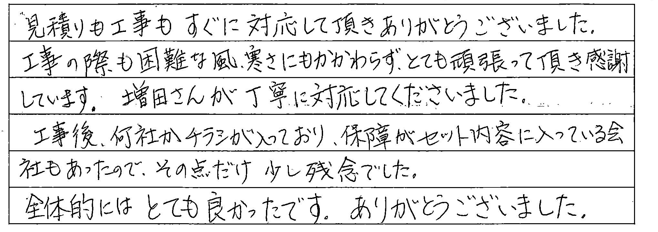 見積りも工事も すぐに 対応して頂きありがとうございました。
工事の際も困難な風、寒さにもかかわらず、とても頑張って頂き感謝
しています。 増田さんが 丁寧に対応してくださいました。
工事後、何社かチラシが入っており、保障がセット内容に入っている会
社もあったので、その点だけ 少し残念でした。
全体的には とても良かったです。 ありがとうございました。